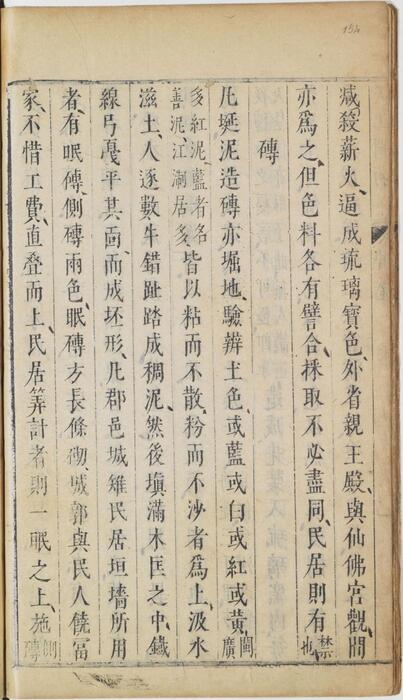 154
減殺薪火、逼成琉璃寶色、外省親王殿、與仙佛宮觀、間
亦爲之、但色料各有譬合、採取不必盡同、民居則有禁也
磚
凡埏泥造磚、亦堀地、驗辨土色、或藍或白或紅或黃、閩廣
多紅泥、藍者名善泥、江淛居多、皆以粘而不散、粉而不沙者爲上、汲水
滋土、人逐數牛錯趾、踏成稠泥、然後塡滿木匡之中、鐵
線弓戞平其面、而成坯形、凡郡邑城雉民居垣墻所用
者、有眠磚、側磚兩色、眠磚方長條、砌城郭與民人饒冨
家、不惜工費、直疊而上、民居筭計者、則一眠之上、施側磚